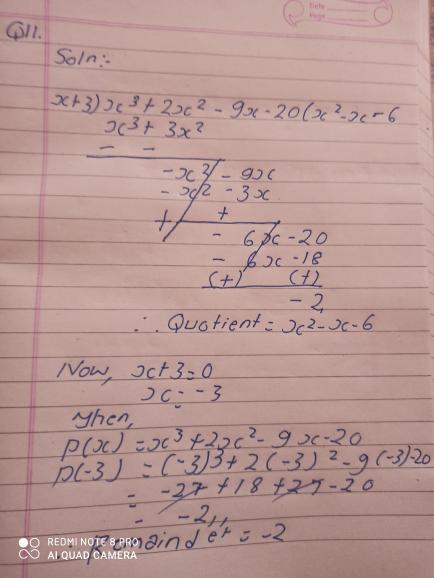 Q11.
Soln:-
x+3) x³ + 2x² - 9x - 20 (x² - x - 6
x³ + 3x²
- -
-x² - 9x
-x² - 3x
+ +
- 6x - 20
- 6x - 18
(+) (+)
- 2
∴ Quotient = x² - x - 6
Now, x+3 = 0
x = -3
Then,
p(x) = x³ + 2x² - 9x - 20
p(-3) = (-3)³ + 2(-3)² - 9(-3) - 20
= -27 + 18 + 27 - 20
= -2,,
Remainder = -2
REDMI NOTE 8 PRO
AI QUAD CAMERA